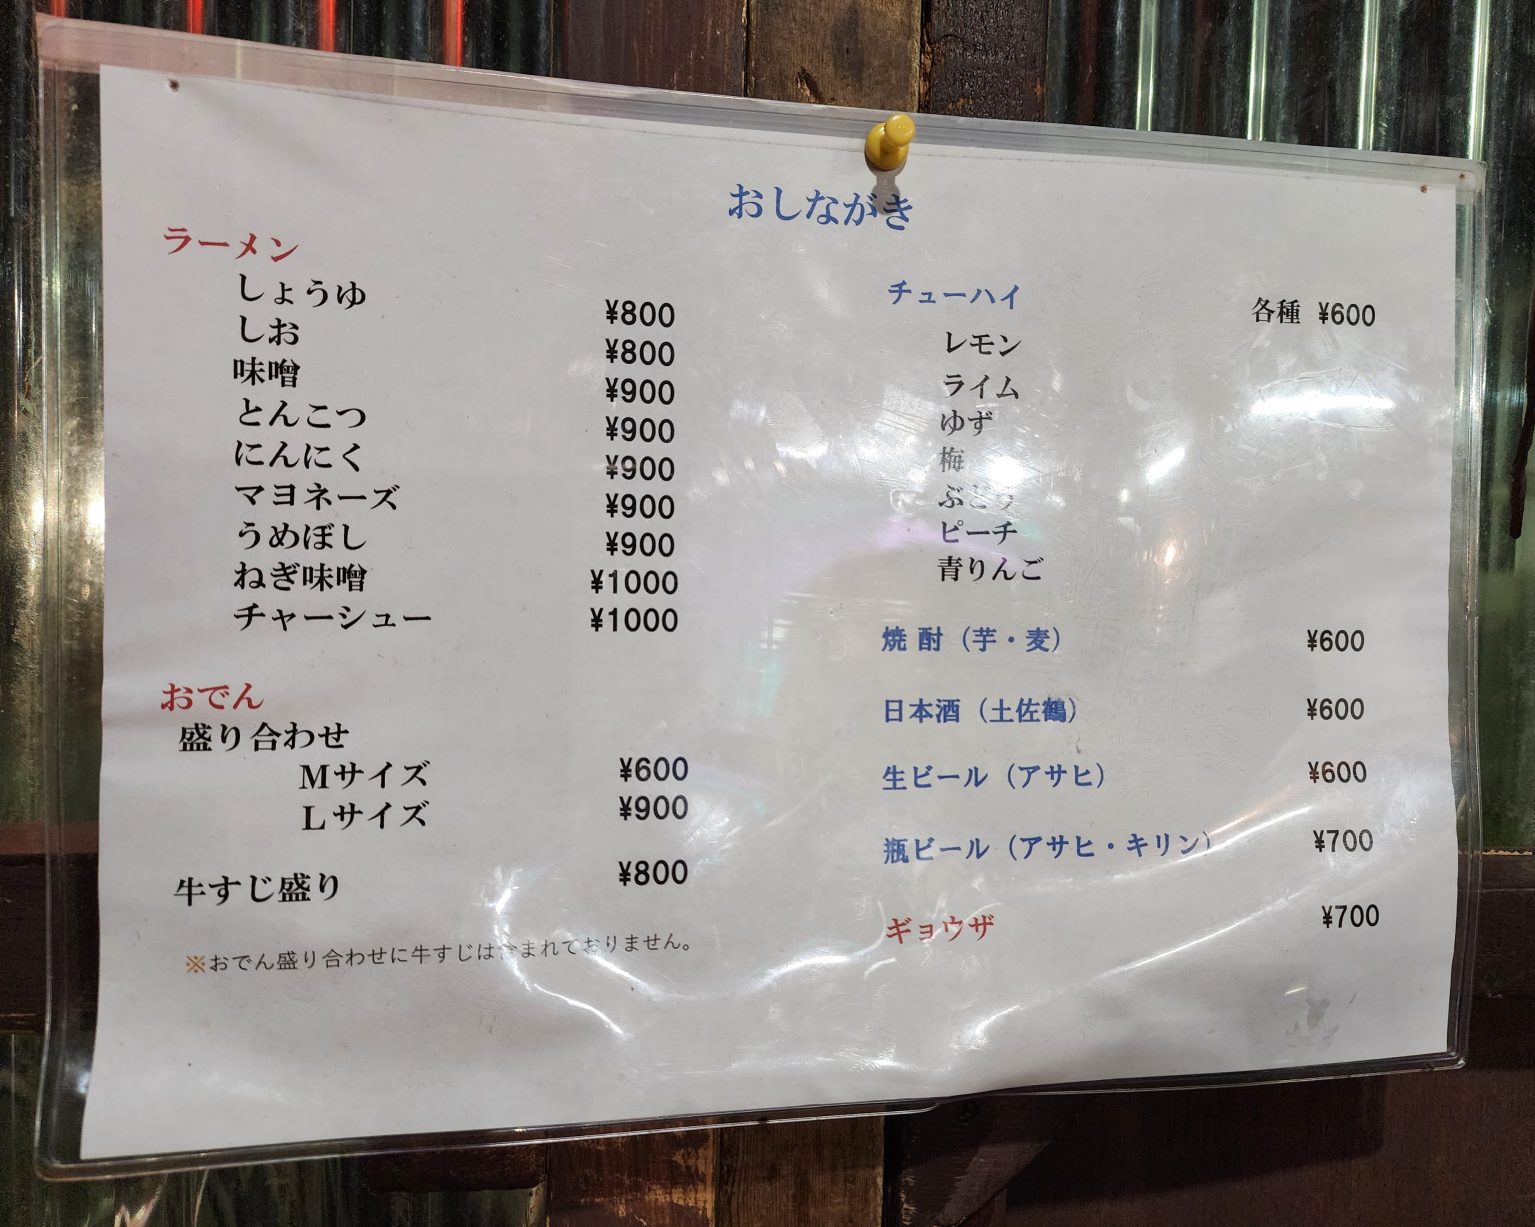 おしながき
ラーメン
しょうゆ ¥800
しお ¥800
味噌 ¥900
とんこつ ¥900
にんにく ¥900
マヨネーズ ¥900
うめぼし ¥900
ねぎ味噌 ¥1000
チャーシュー ¥1000
おでん
盛り合わせ
Mサイズ ¥600
Lサイズ ¥900
牛すじ盛り ¥800
※おでん盛り合わせに牛すじは含まれておりません。
チューハイ 各種 ¥600
レモン
ライム
ゆず
梅
ぶどう
ピーチ
青りんご
焼酎（芋・麦） ¥600
日本酒（土佐鶴） ¥600
生ビール（アサヒ） ¥600
瓶ビール（アサヒ・キリン） ¥700
ギョウザ ¥700